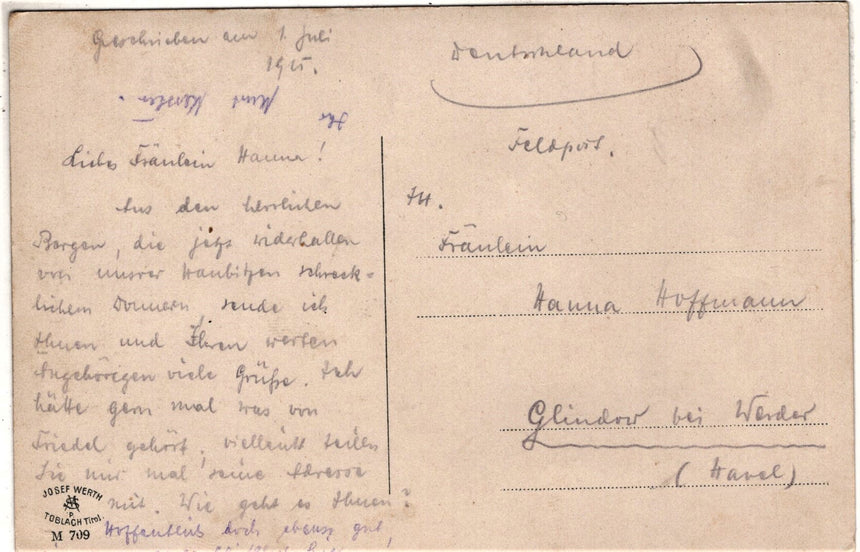 Geschrieben am 1. Juli
1915.
Ihr
Kurt
Liebes Fräulein Hanna!
Aus den herrlichen
Bergen, die jetzt widerhallen
von unsrer Haubitzen schreck-
lichem Donnern, sende ich
Ihnen und Ihren werten
Angehörigen viele Grüße. Ich
hätte gern mal was von
Friedel gehört, vielleicht teilen
Sie mir mal seine Adresse
mit. Wie geht es Ihnen?
Hoffentlich doch ebenso gut,
JOSEF WERTH
P.
TOBLACH Tirol.
M 709
Deutschland
Feldpost.
An.
Fräulein
Hanna Hoffmann
Glindow bei Werder
(Havel)